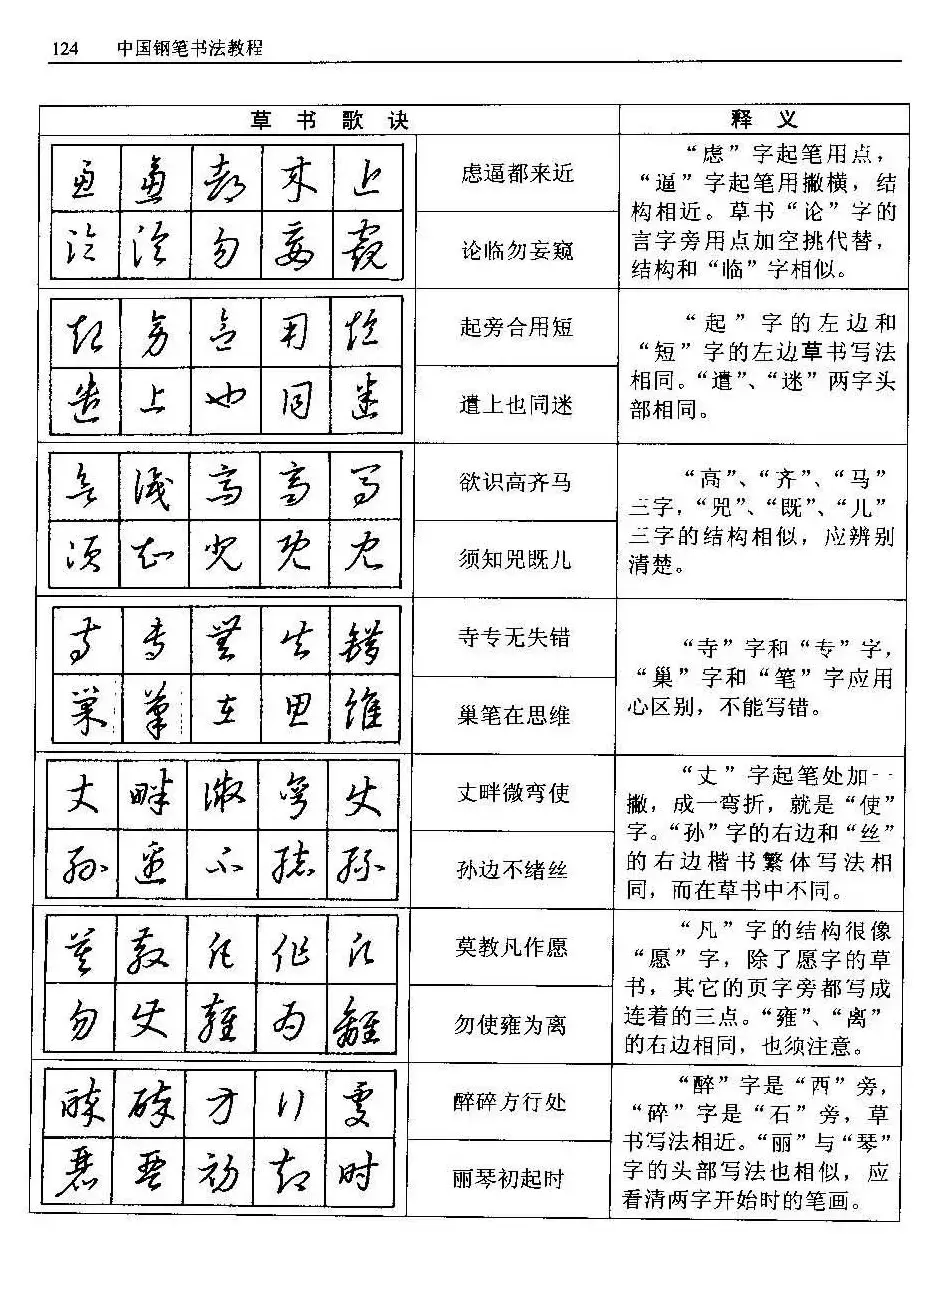 124 中国钢笔书法教程
草书歌诀 释义
虑逼都来近
论临勿妄窥
“虑”字起笔用点，
“逼”字起笔用撇横，结
构相近。草书“论”字的
言字旁用点加空挑代替，
结构和“临”字相似。
起旁合用短
遣上也同迷
“起”字的左边和
“短”字的左边草书写法
相同。“遣”、“迷”两字头
部相同。
欲识高齐马
须知咒既儿
“高”、“齐”、“马”
三字，“咒”、“既”、“儿”
三字的结构相似，应辨别
清楚。
寺专无失错
巢笔在思维
“寺”字和“专”字，
“巢”字和“笔”字应用
心区别，不能写错。
丈畔微弯使
孙边不绪丝
“丈”字起笔处加一
撇，成一弯折，就是“使”
字。“孙”字的右边和“丝”
的右边楷书繁体写法相
同，而在草书中不同。
莫教凡作愿
勿使雍为离
“凡”字的结构很像
“愿”字，除了愿字的草
书，其它的页字旁都写成
连着的三点。“雍”、“离”
的右边相同，也须注意。
醉碎方行处
丽琴初起时
“醉”字是“西”旁，
“碎”字是“石”旁，草
书写法相近。“丽”与“琴”
字的头部写法也相似，应
看清两字开始时的笔画。